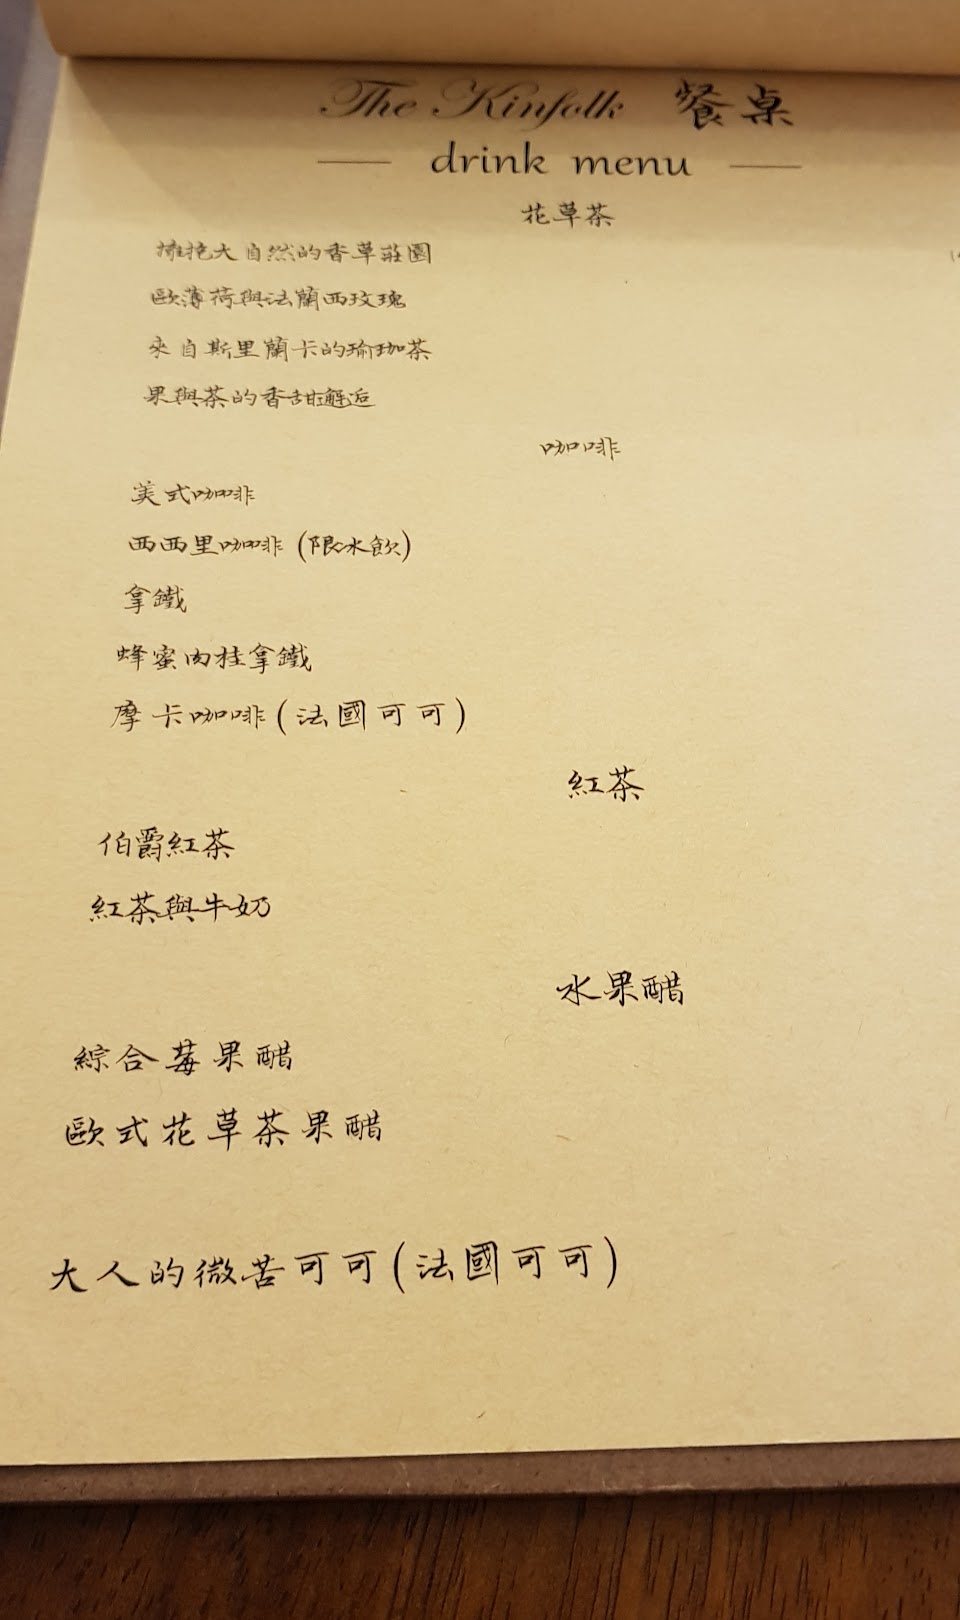 The Kinfolk 餐桌
drink menu
花草茶
擁抱大自然的香草莊園
歐薄荷與法蘭西玫瑰
來自斯里蘭卡的瑜珈茶
果與茶的香甜邂逅
咖啡
美式咖啡
西西里咖啡 (限冰飲)
拿鐵
蜂蜜肉桂拿鐵
摩卡咖啡 (法國可可)
紅茶
伯爵紅茶
紅茶與牛奶
水果醋
綜合莓果醋
歐式花草茶果醋
大人的微苦可可 (法國可可)